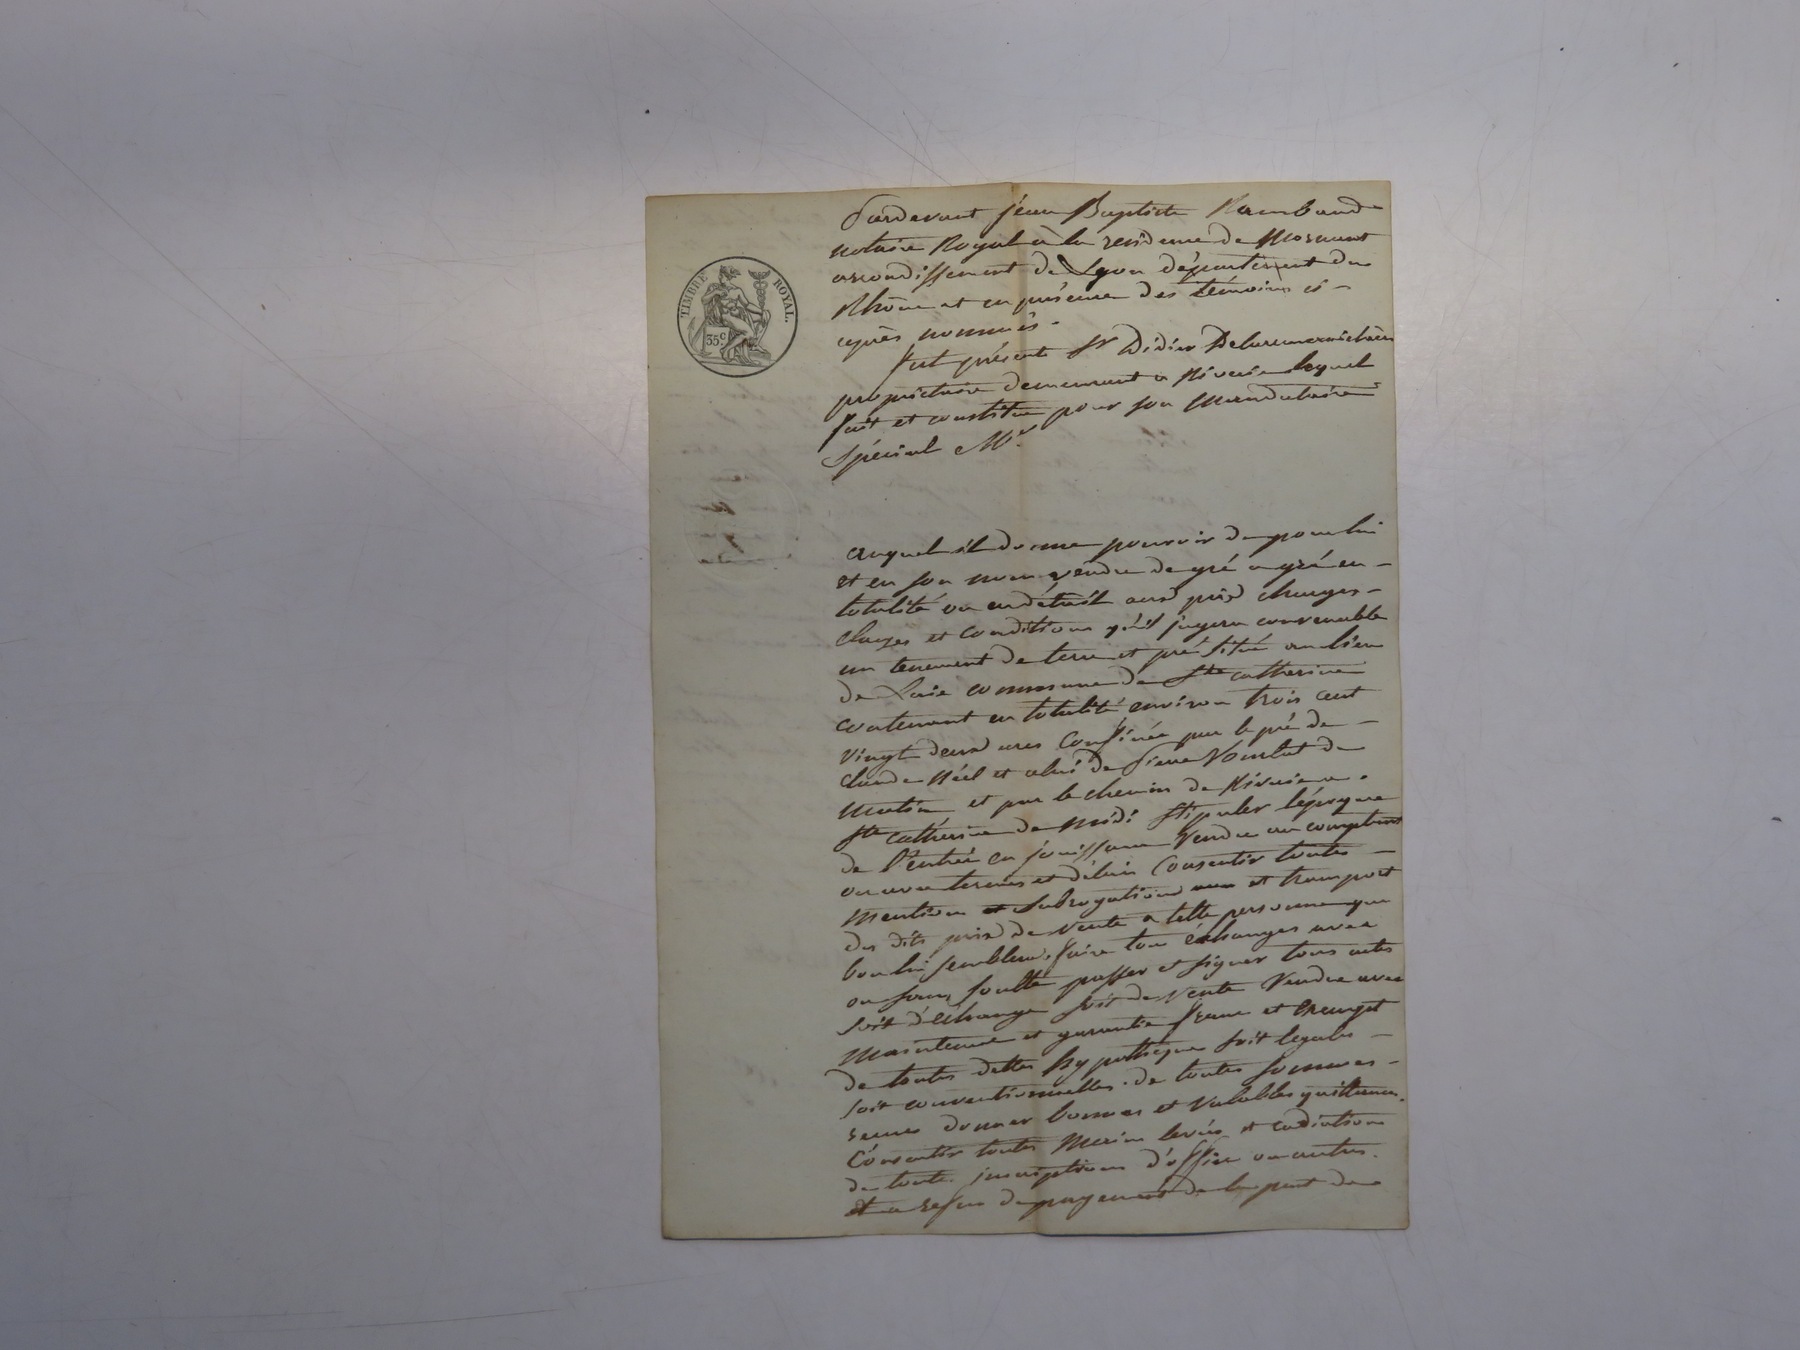 TIMBRE ROYAL.
35 c
Pardevant jean Baptiste Rambaud
notaire Royal à la residence de Mornant
arrondissement de Lyon département du
Rhône et en présence des témoins ci-
après nommés.
fut présent Sr Didier
propriétaire demeurant a Riverie lequel
fait et constitue pour son Mandataire
Spécial Mr
auquel il donne pouvoir de pour lui
et en son nom vendre de gré a gré en
totalité ou en détail aux prix charges
clauses et conditions qu'il jugera convenable
un tenement de terre et pré situé au lieu
de commune de Ste catherine
contenant en totalité environ trois cent
vingt deux ares Confinée par le pré de
Claude et celui de Pierre de
matin et par le chemin de Riverie a
Ste catherine de midi Stipuler l'époque
de l'entrée en jouissance Vendre au comptant
ou avec termes et délais Consentir toutes
mention et Subrogations et transport
des dits prix de vente a telle personne que
bon lui semblera, faire tous échanges avec
ou sans soulte passer et signer tous actes
soit d'échange soit de vente Vendre avec
maintenue et garantie franc et exempt
de toutes dettes hypothèques soit légales
soit conventionnelles. de toutes sommes
recues donner bonnes et valables quittances.
Consentir toutes Main levées et radiations
de toute inscriptions d'office ou autres.
et a refus de payement de la part de